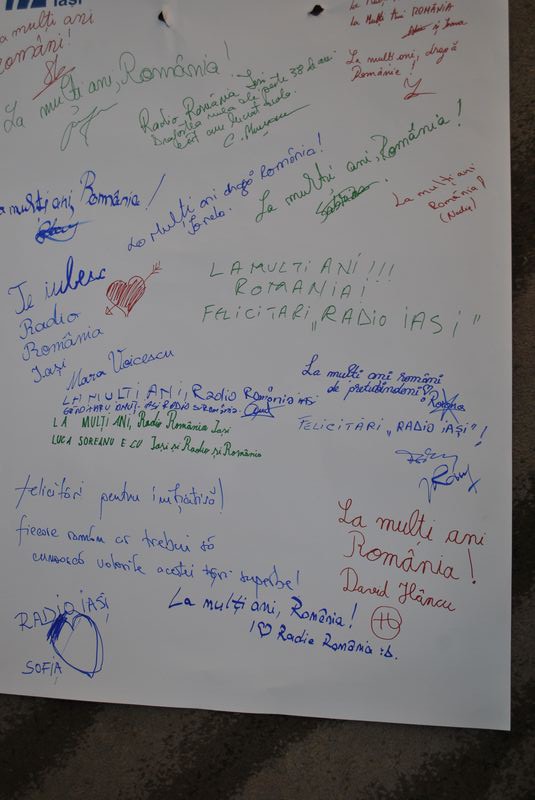 Iași
La mulți ani
români!
La Mulți Ani ROMÂNIA
La mulți ani, dragă
România!
La mulți ani, România!
Radio România Iași
Dragostea mea de peste 38 de ani
C.
La mulți ani, România!
La Mulți ani dragă România!
Ionela.
La mulți ani, România!
La mulți ani
România!
(Nadia)
Te iubesc
Radio
România
Iași
Mara Voicescu
LA MULȚI ANI!!!
ROMANIA!
FELICITĂRI „RADIO IAȘI"
LA MULȚI ANI, Radio România Iasi
LA MULȚI ANI, Radio România Iași
LUCA SOREANU E CU Iași și Radio și România
La mulți ani români
de pretutindeni
FELICITĂRI „RADIO IAȘI"!
felicitări pentru inițiativă!
fiecare român ar trebui să
cunoască valorile acestei țări superbe!
La mulți ani
România!
David Hăncu
RADIO IAȘI
SOFIA
La mulți ani, România!
I ♡ Radio România :b.